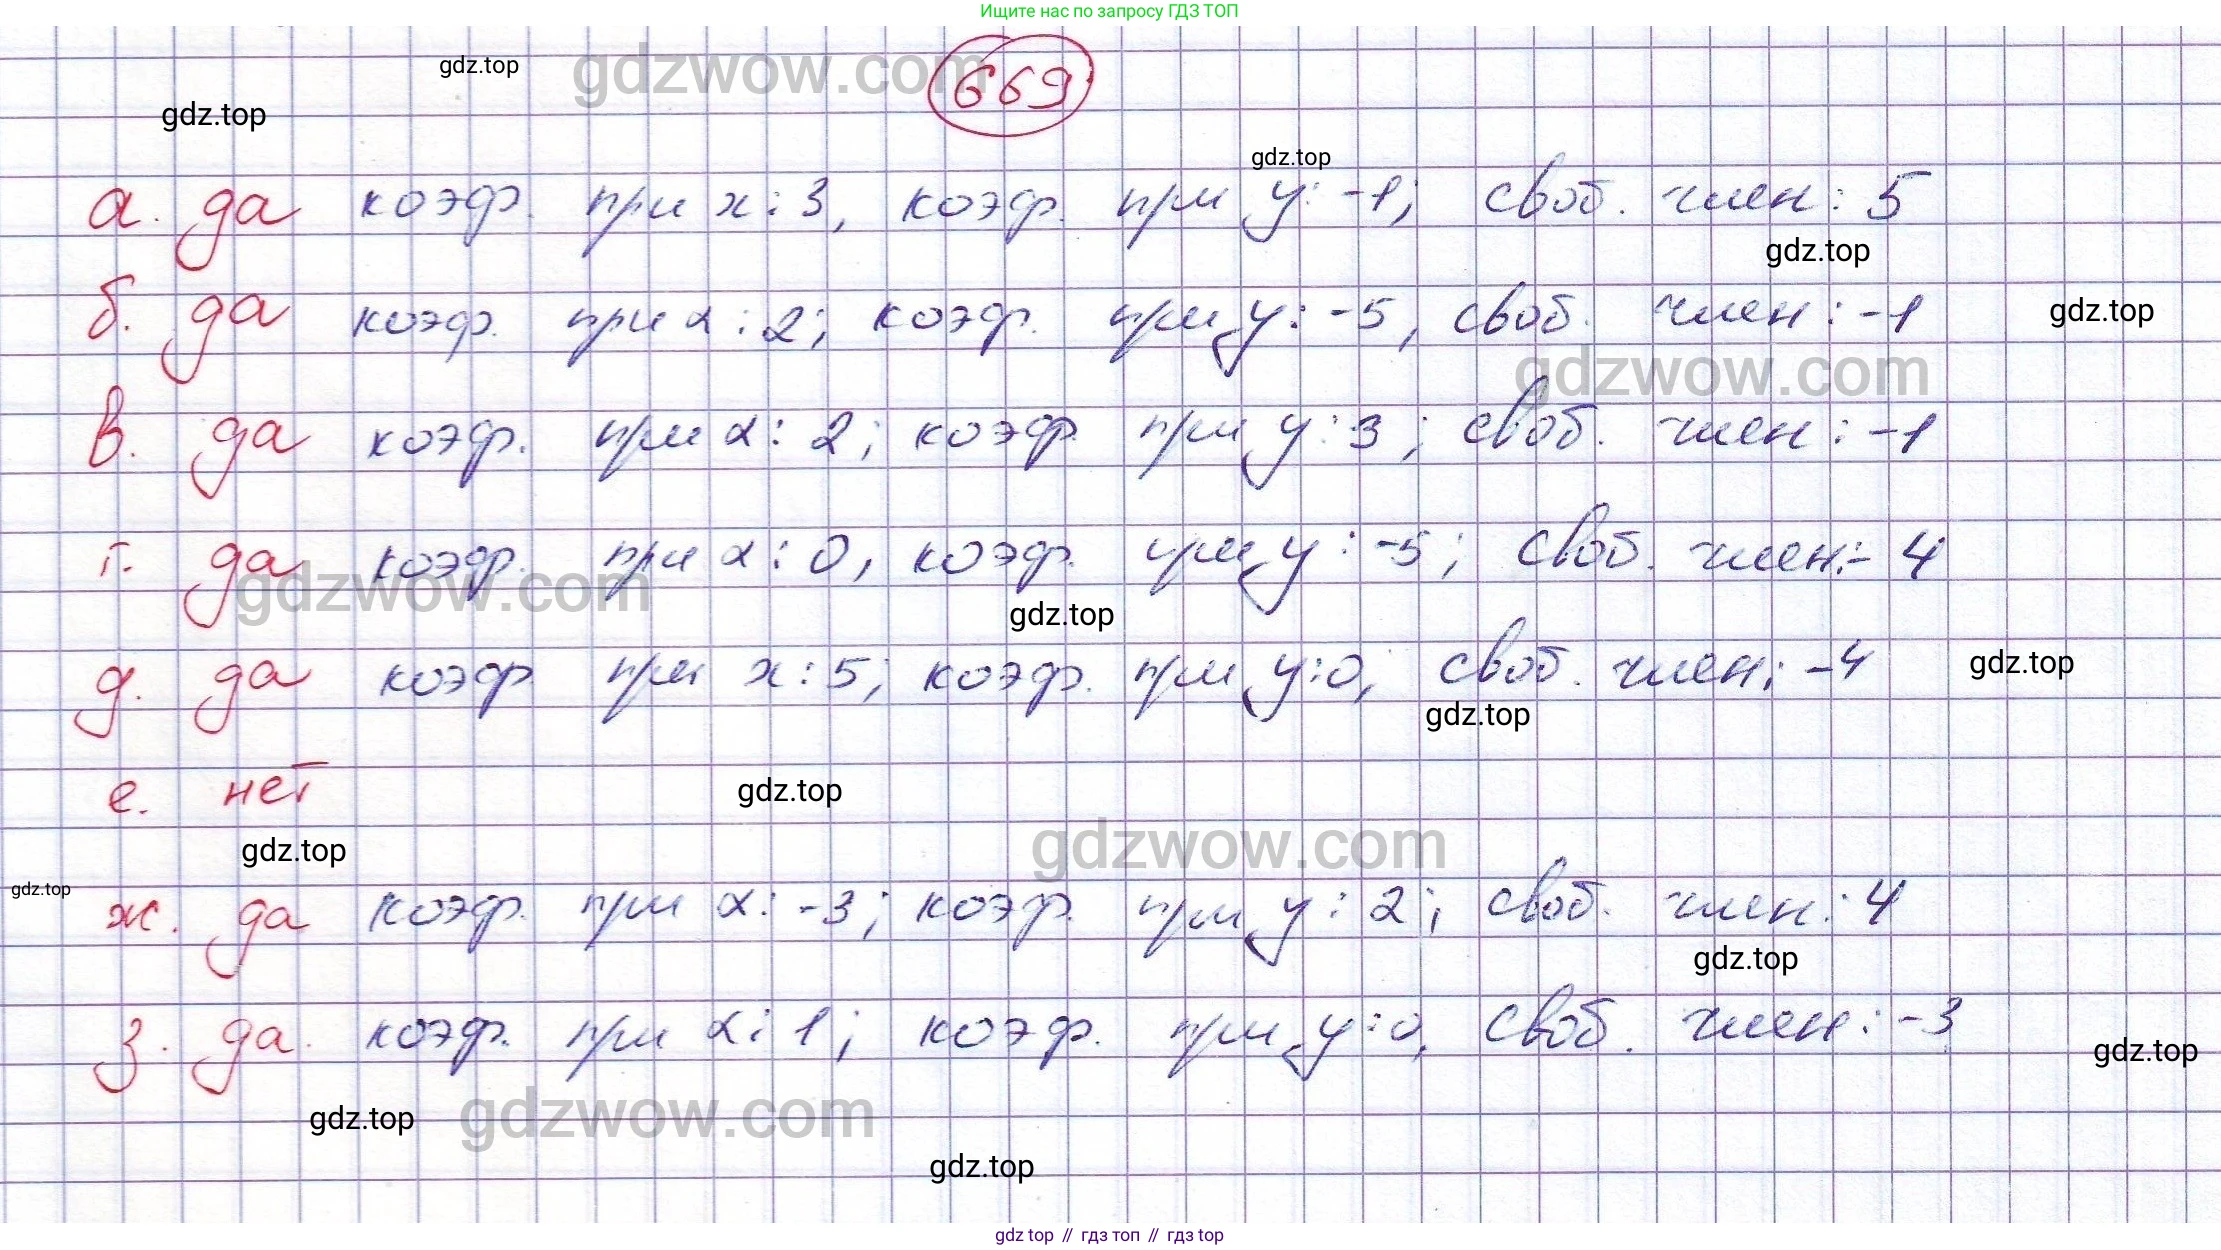 Ищите нас по запросу ГДЗ ТОП
gdz.top gdzwow.com 669
gdz.top
gdz.top
а. да коэф. при x: 3, коэф. при y: -1; своб. член: 5
gdz.top
б. да коэф. при x: 2; коэф. при y: -5, своб. член: -1 gdz.top
gdzwow.com
в. да коэф. при x: 2; коэф. при y: 3; своб. член: -1
г. да коэф. при x: 0, коэф. при y: -5; своб. член: -4
gdzwow.com gdz.top
д. да коэф при x: 5; коэф. при y: 0, своб. член: -4 gdz.top
gdz.top
е. нет gdz.top
gdz.top gdzwow.com
gdz.top
ж. да коэф. при x: -3; коэф. при y: 2; своб. член: 4
gdz.top
з. да. коэф. при x: 1; коэф. при y: 0, своб. член: -3
gdz.top
gdz.top gdzwow.com
gdz.top
gdz top // гдз топ // гдз top